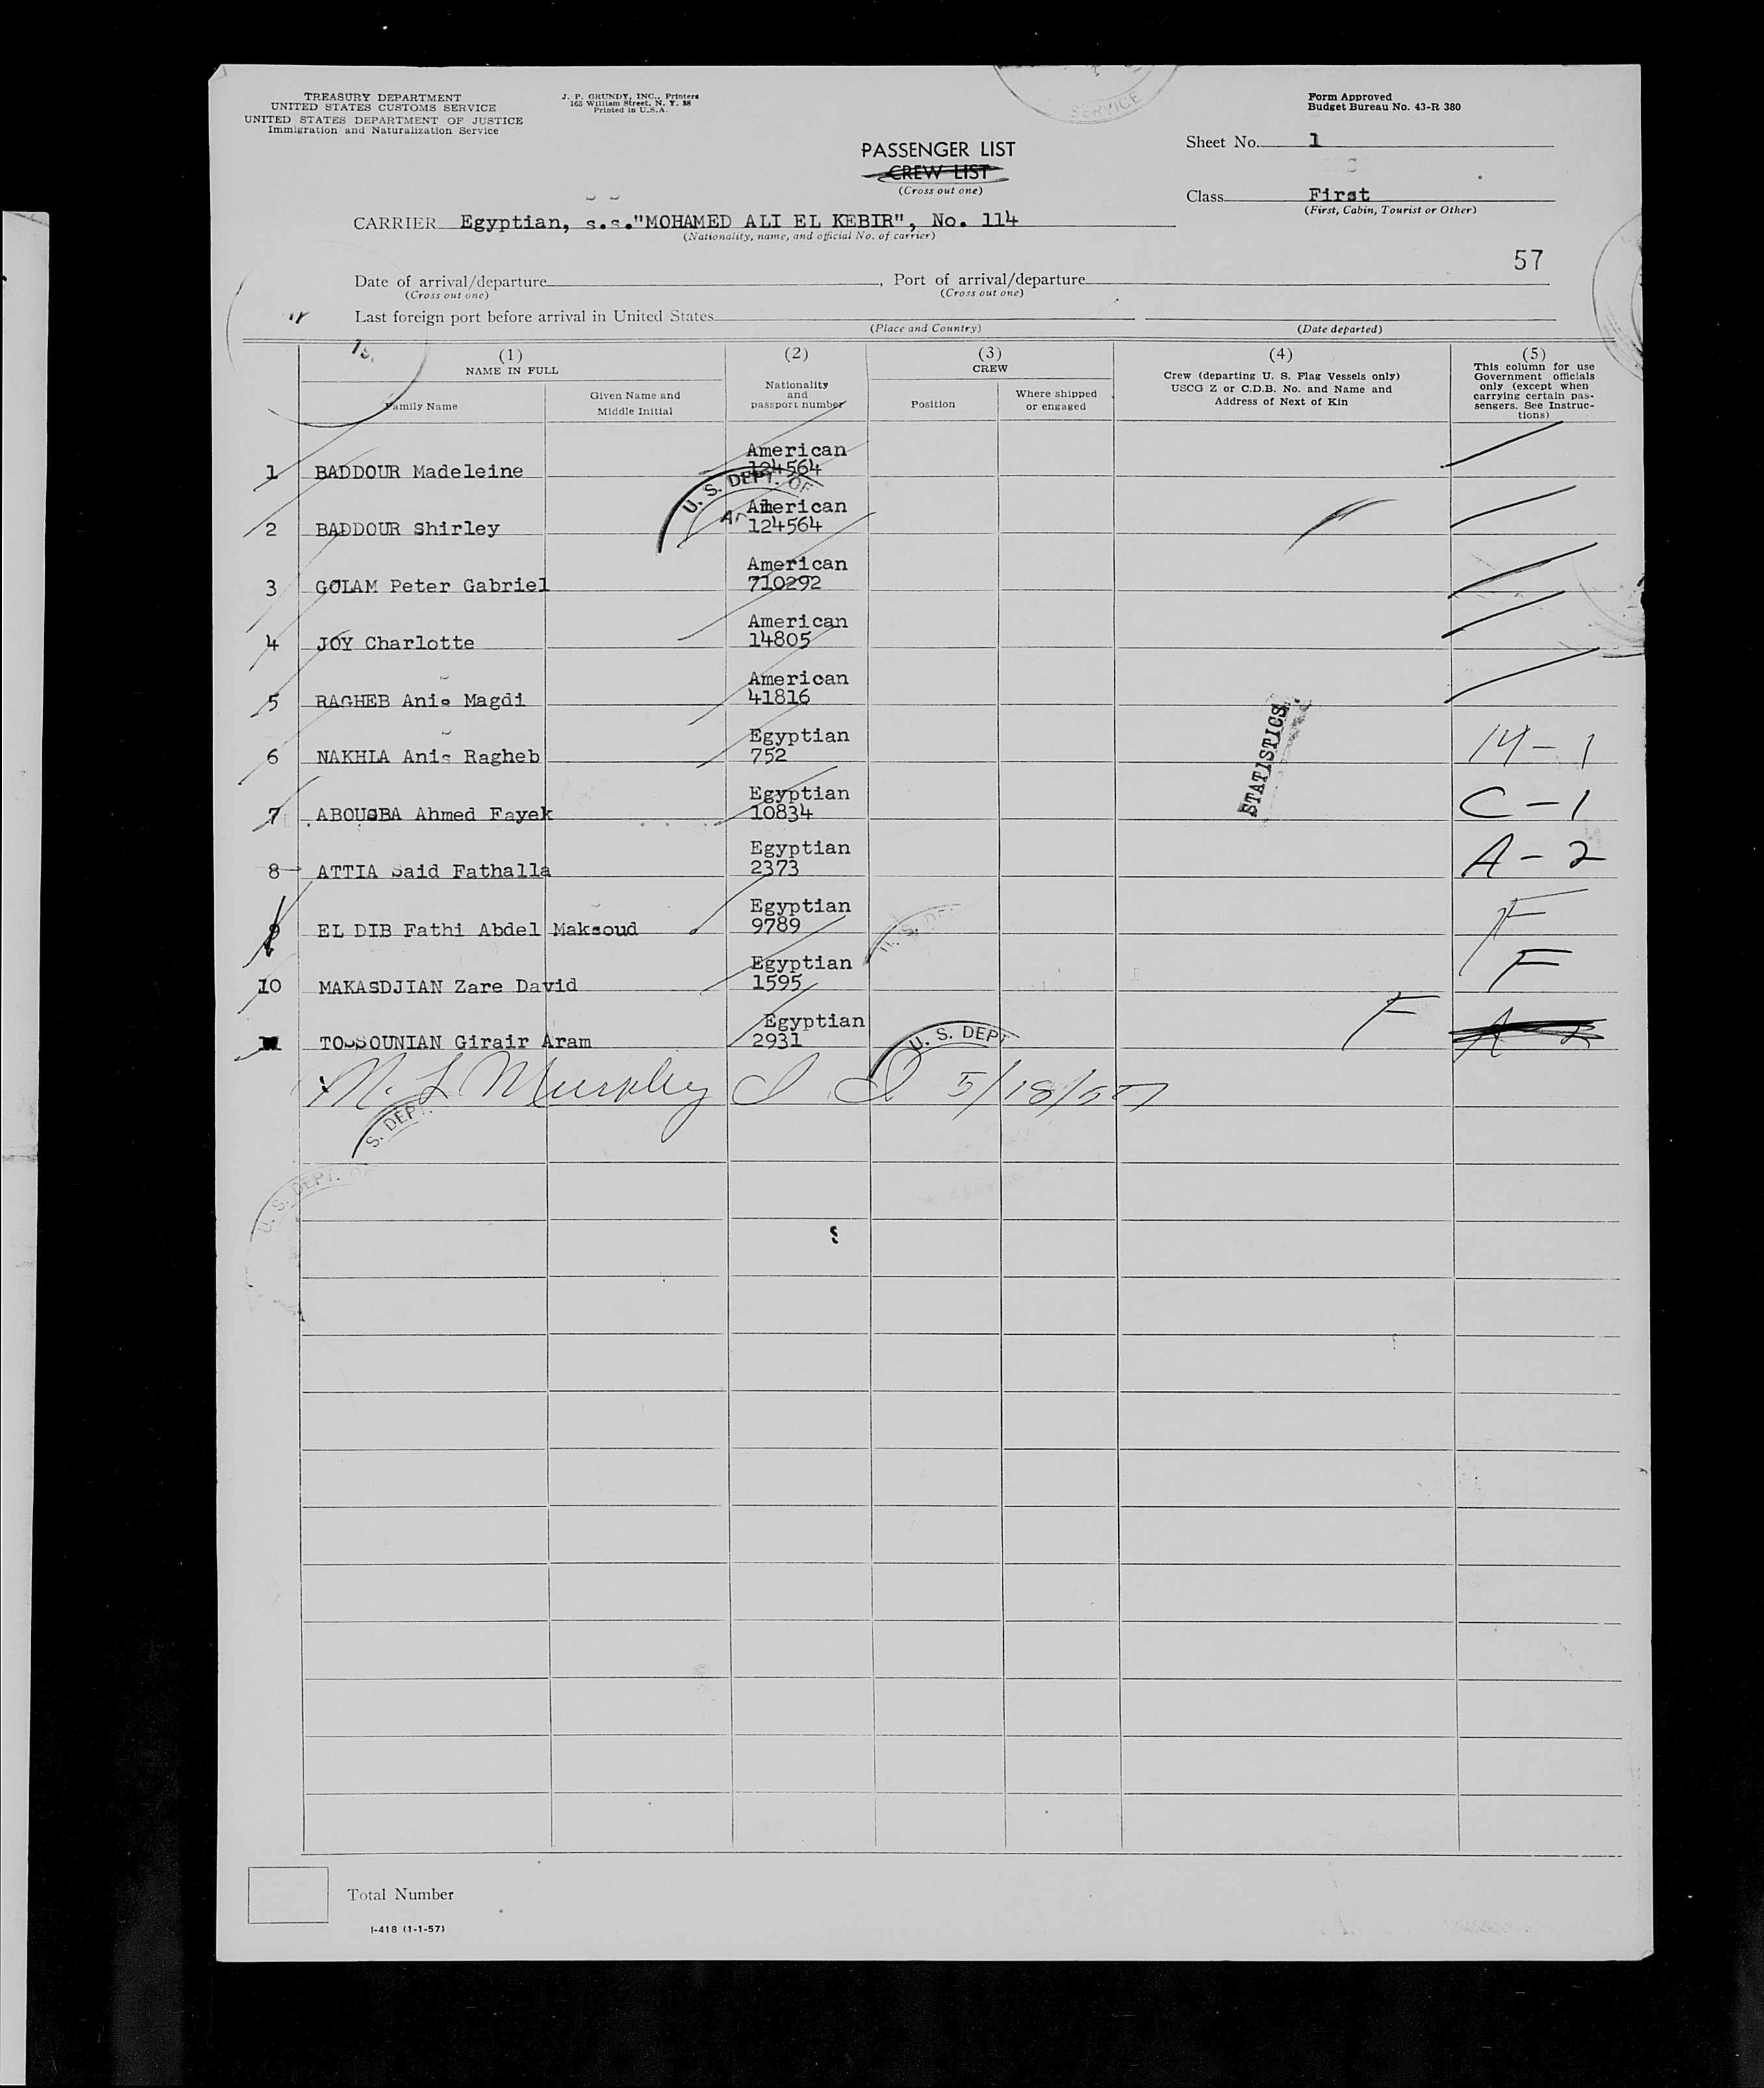 TREASURY DEPARTMENT
UNITED STATES CUSTOMS SERVICE
UNITED STATES DEPARTMENT OF JUSTICE
Immigration and Naturalization Service
J. P. GRUNDY, INC., Printers
165 William Street, N. Y. 38
Printed in U.S.A.
SERVICE
Form Approved
Budget Bureau No. 43-R 380
PASSENGER LIST
CREW LIST
(Cross out one)
Sheet No. 1
Class First
(First, Cabin, Tourist or Other)
CARRIER Egyptian, s.s."MOHAMED ALI EL KEBIR", No. 114
(Nationality, name, and official No. of carrier)
57
Date of arrival/departure , Port of arrival/departure
(Cross out one) (Cross out one)
Last foreign port before arrival in United States
(Place and Country) (Date departed)
(1) NAME IN FULL
Family Name
Given Name and Middle Initial
(2) Nationality and passport number
(3) CREW
Position
Where shipped or engaged
(4) Crew (departing U. S. Flag Vessels only) USCG Z or C.D.B. No. and Name and Address of Next of Kin
(5) This column for use Government officials only (except when carrying certain passengers. See Instructions)
1 BADDOUR Madeleine American 124564
U. S. DEPT. OF
2 BADDOUR Shirley American 124564
3 GOLAM Peter Gabriel American 710292
4 JOY Charlotte American 14805
5 RAGHEB Anis Magdi American 41816
STATISTICS
6 NAKHLA Anis Ragheb Egyptian 752 14-1
7 ABOUSBA Ahmed Fayek Egyptian 10834 C-1
8 ATTIA Said Fathalla Egyptian 2373 A-2
9 EL DIB Fathi Abdel Maksoud Egyptian 9789 F
U. S. DE
10 MAKASDJIAN Zare David Egyptian 1595 F
11 TOSSOUNIAN Girair Aram Egyptian 2931 F A-2
U. S. DEPT
M. L Murphy 5/18/57
S. DEPT.
U. S. DEPT.
Total Number
I-418 (1-1-57)